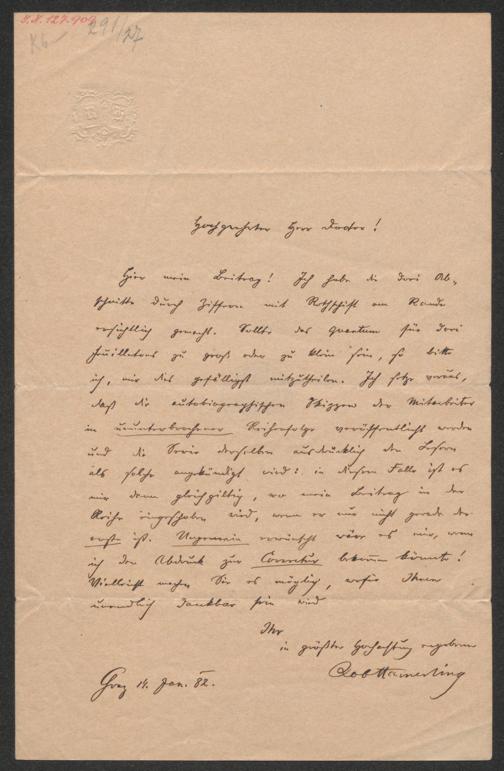 I.N. 127.909
291/27
Hochgeehrter Herr Doctor!
Hier mein Beitrag! Ich habe die drei Ab-
schnitte durch Ziffern mit Rothstift am Rande
ersichtlich gemacht. Sollte das Quantum für drei
Feuilletons zu groß oder zu klein sein, so bitte
ich, mir dies gefälligst mitzutheilen. Ich setze voraus,
daß die autobiographischen Skizzen der Mitarbeiter
in ununterbrochener Reihenfolge veröffentlicht werden
und die Serie derselben ausdrücklich den Lesern
als solche angekündigt wird: in diesem Falle ist es
mir dann gleichgiltig, wo mein Beitrag in der
Reihe eingeschoben wird, wenn er nur nicht gerade der
erste ist. Ungemein erwünscht wäre es mir, wenn
ich den Abdruck zur Correctur bekommen könnte!
Vielleicht machen Sie es möglich, wofür Ihnen
unendlich dankbar sein wird
Ihr
in größter Hochachtung ergebener
Rob Hamerling
Graz 14. Jan. 82.